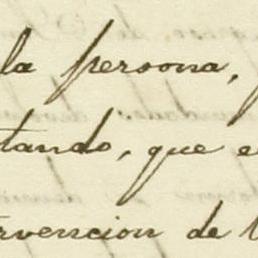 la persona,
tando, que e
rvencion de